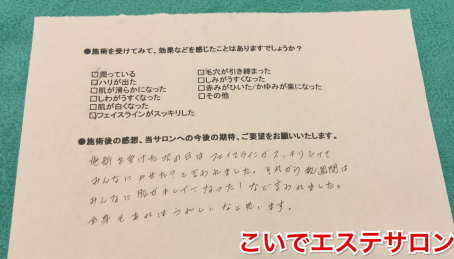 ●施術を受けてみて、効果などを感じたことはありますでしょうか？
☑潤っている
☑ハリが出た
□肌が滑らかになった
□しわがうすくなった
□肌が白くなった
☑フェイスラインがスッキリした
☑毛穴が引き締まった
□しみがうすくなった
□赤みがひいた/かゆみが楽になった
□その他
●施術後の感想、当サロンへの今後の期待、ご要望をお願いいたします。
施術を受けた次の日はフェイスラインがスッキリしてて
みんなにやせた?と言われました。それから数週間は
みんなに肌がキレイになった!など言われました。
全身もあればうれしいなと思います。
こいでエステサロン